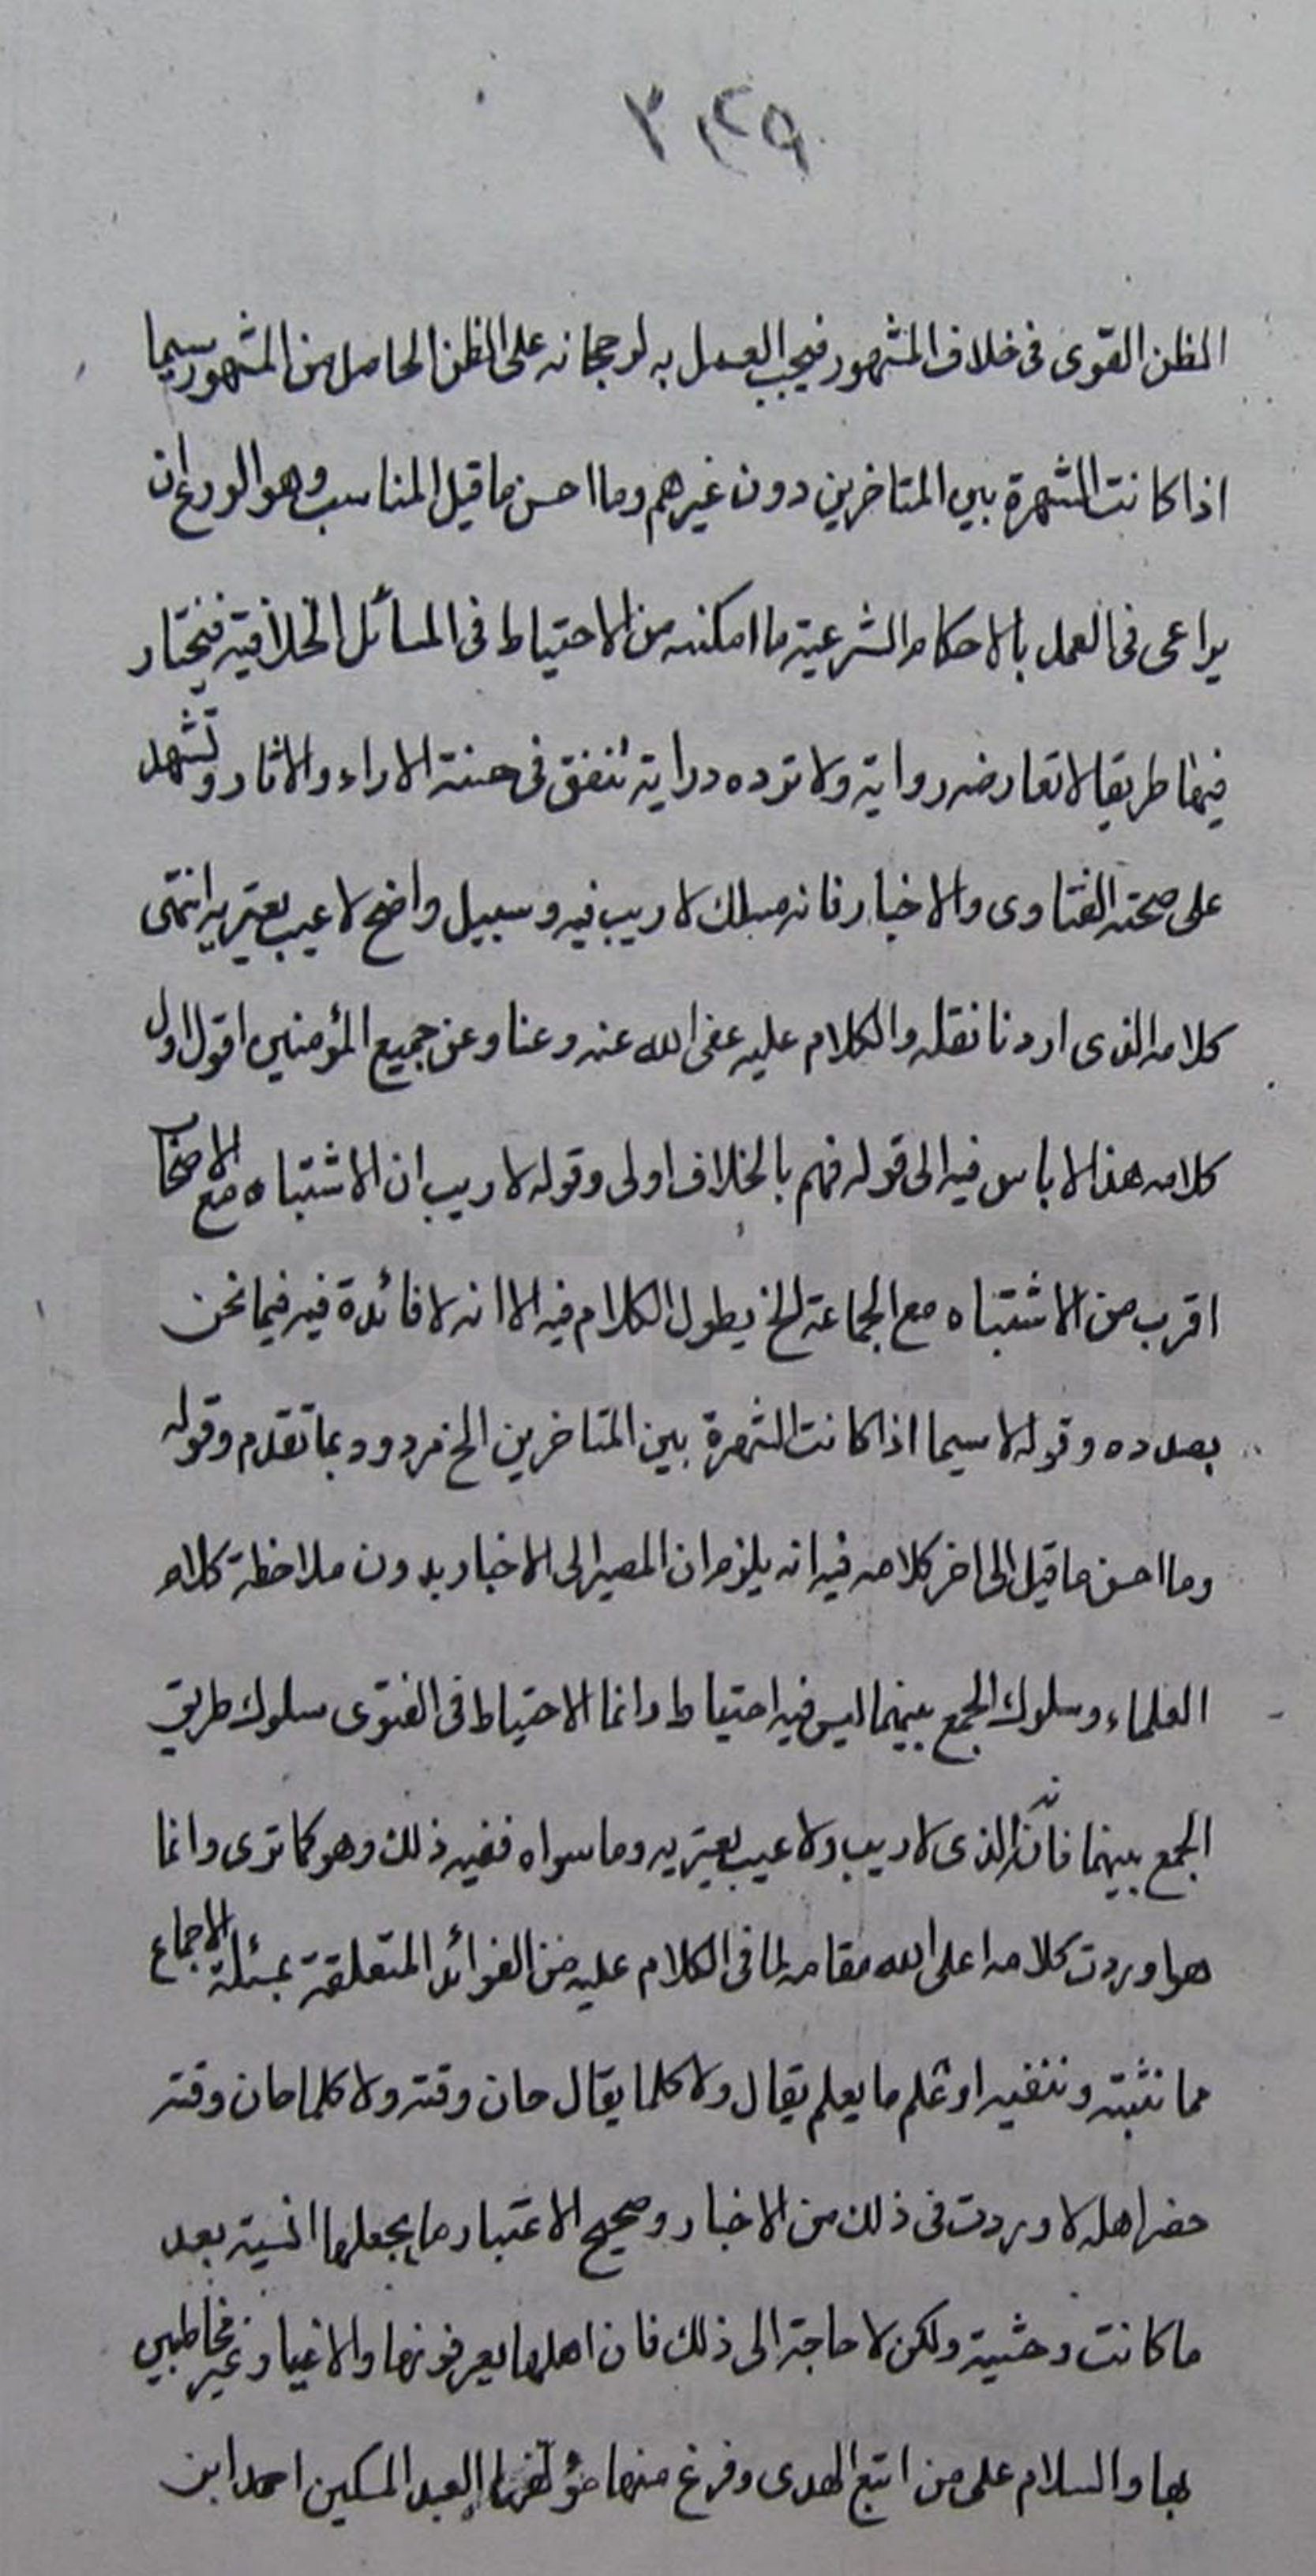 الظن القوى فى خلاف المشهور فيجب العمل به لرجحانه على الظن الحاصل من المشهور سيما
اذا كانت الشهرة بين المتاخرين دون غيرهم وما احسن ما قيل المناسب وهو الورع ان
يراعى فى العمل بالاحكام الشرعية ما امكنه من الاحتياط فى المسائل الخلافية فيختار
فيها طريقا لا تعارضه رواية ولا ترده دراية تتفق فى الاراء والاثار وتشهد
على صحته الفتاوى والاخبار فانه مسلك لا ريب فيه وسبيل واضح لا عيب يعتريه انتهى
كلامه الذى اردنا نقله والكلام عليه عفى الله عنه وعنا وعن جميع المؤمنين اقول اول
كلامه هذا لا باس فيه الى قوله فهم بالخلاف اولى وقوله لا ريب ان الاشتباه مع الاصحاب
اقرب من الاشتباه مع الجماعة الخ يطول الكلام فيه الا انه لا فائدة فيه فيما نحن
بصدده وقوله لا سيما اذا كانت الشهرة بين المتاخرين الخ مردود بما تقدم وقوله
وما احسن ما قيل الى اخر كلامه فيه انه يلزم ان المصير الى الاخبار بدون ملاحظة كلام
العلماء وسلوك الجمع بينهما ليس فيه احتياط وانما الاحتياط فى الفتوى سلوك طريق
الجمع بينهما فانه الذى لا ريب ولا عيب يعتريه وما سواه ففيه ذلك وهو كما ترى وانما
اوردت كلامه اعلى الله مقامه لما فى الكلام عليه من الفوائد المتعلقة بمسئلة الاجماع
مما نثبته وننفيه او كلم ما يعلم يقال ولا كلما يقال حان وقته ولا كلما حان وقته
حضر اهله لاوردت فى ذلك من الاخبار وصحيح الاعتبار ما يجعلها انسية بعد
ما كانت وحشية ولكن لا حاجة الى ذلك فان اهلها يعرفونها والاغيار غير مخاطبين
بها والسلام على من اتبع الهدى وفرغ منها مؤلفها العبد المسكين احمد ابن